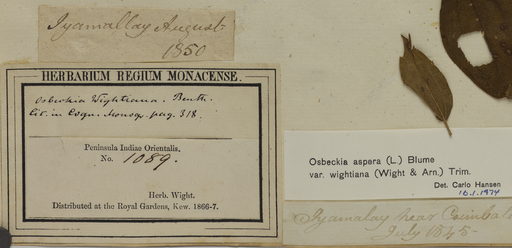 Iyamallay August
1850
HERBARIUM REGIUM MONACENSE.
Osbeckia Wightiana. Benth.
Cit. in Cogn. Monogr. pag. 318.
Peninsula Indiae Orientalis.
No. 1089.
Herb. Wight.
Distributed at the Royal Gardens, Kew. 1866-7.
Osbeckia aspera (L.) Blume
var. wightiana (Wight & Arn.) Trim.
Det. Carlo Hansen
16.1.1974
Iyamalay near Coimbato
July 1845